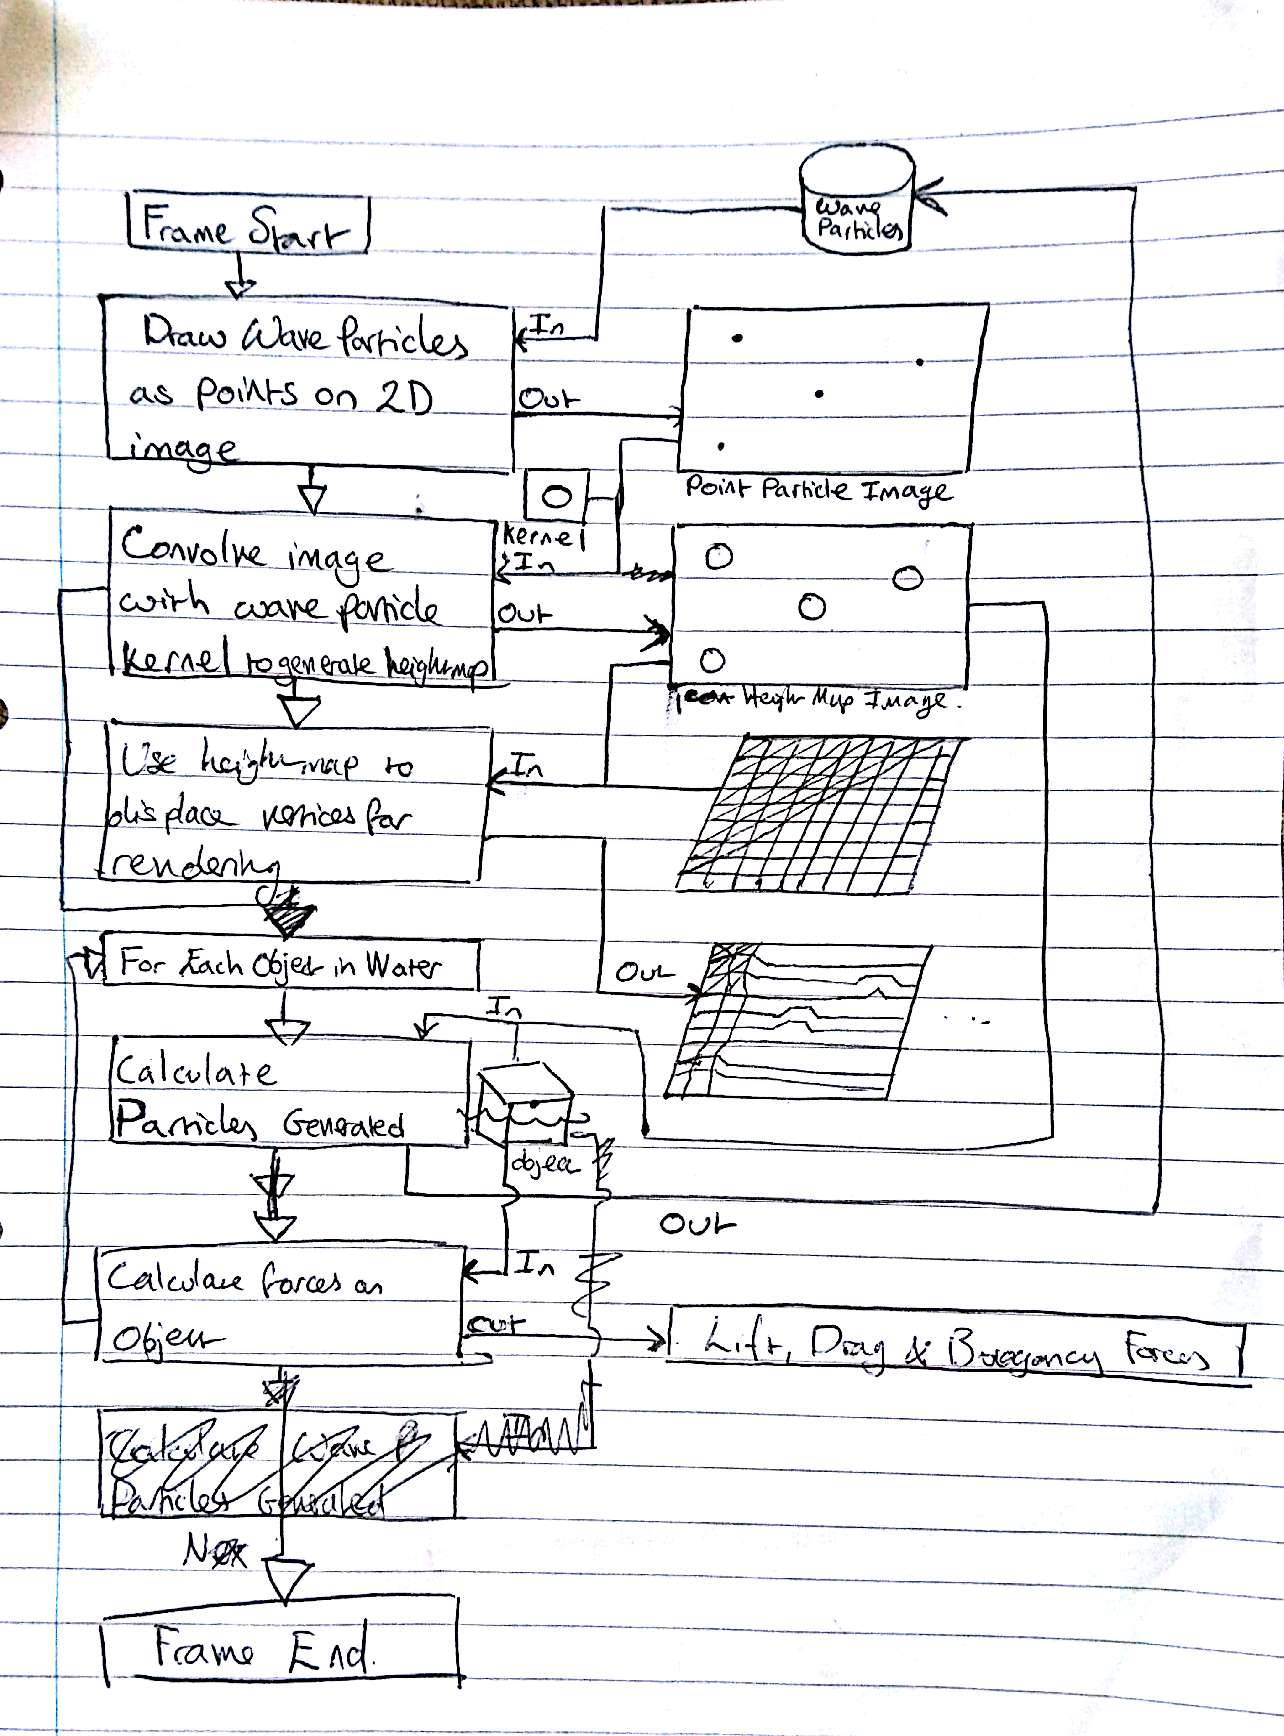 Wave
Particles
Frame Start
Draw Wave Particles
as points on 2D
image
In
Out
Point Particle Image
Kernel
Convolve image
with wave particle
kernel to generate heightmap
In
Out
Height Map Image.
Use heightmap to
displace vertices for
rendering
In
Out
For Each Object in Water
In
Calculate
Particles Generated
object
Out
Calculate forces on
Object
In
Out
Lift, Drag & Buoyancy Forces
Calculate Wave P
Particles Generated
Frame End.